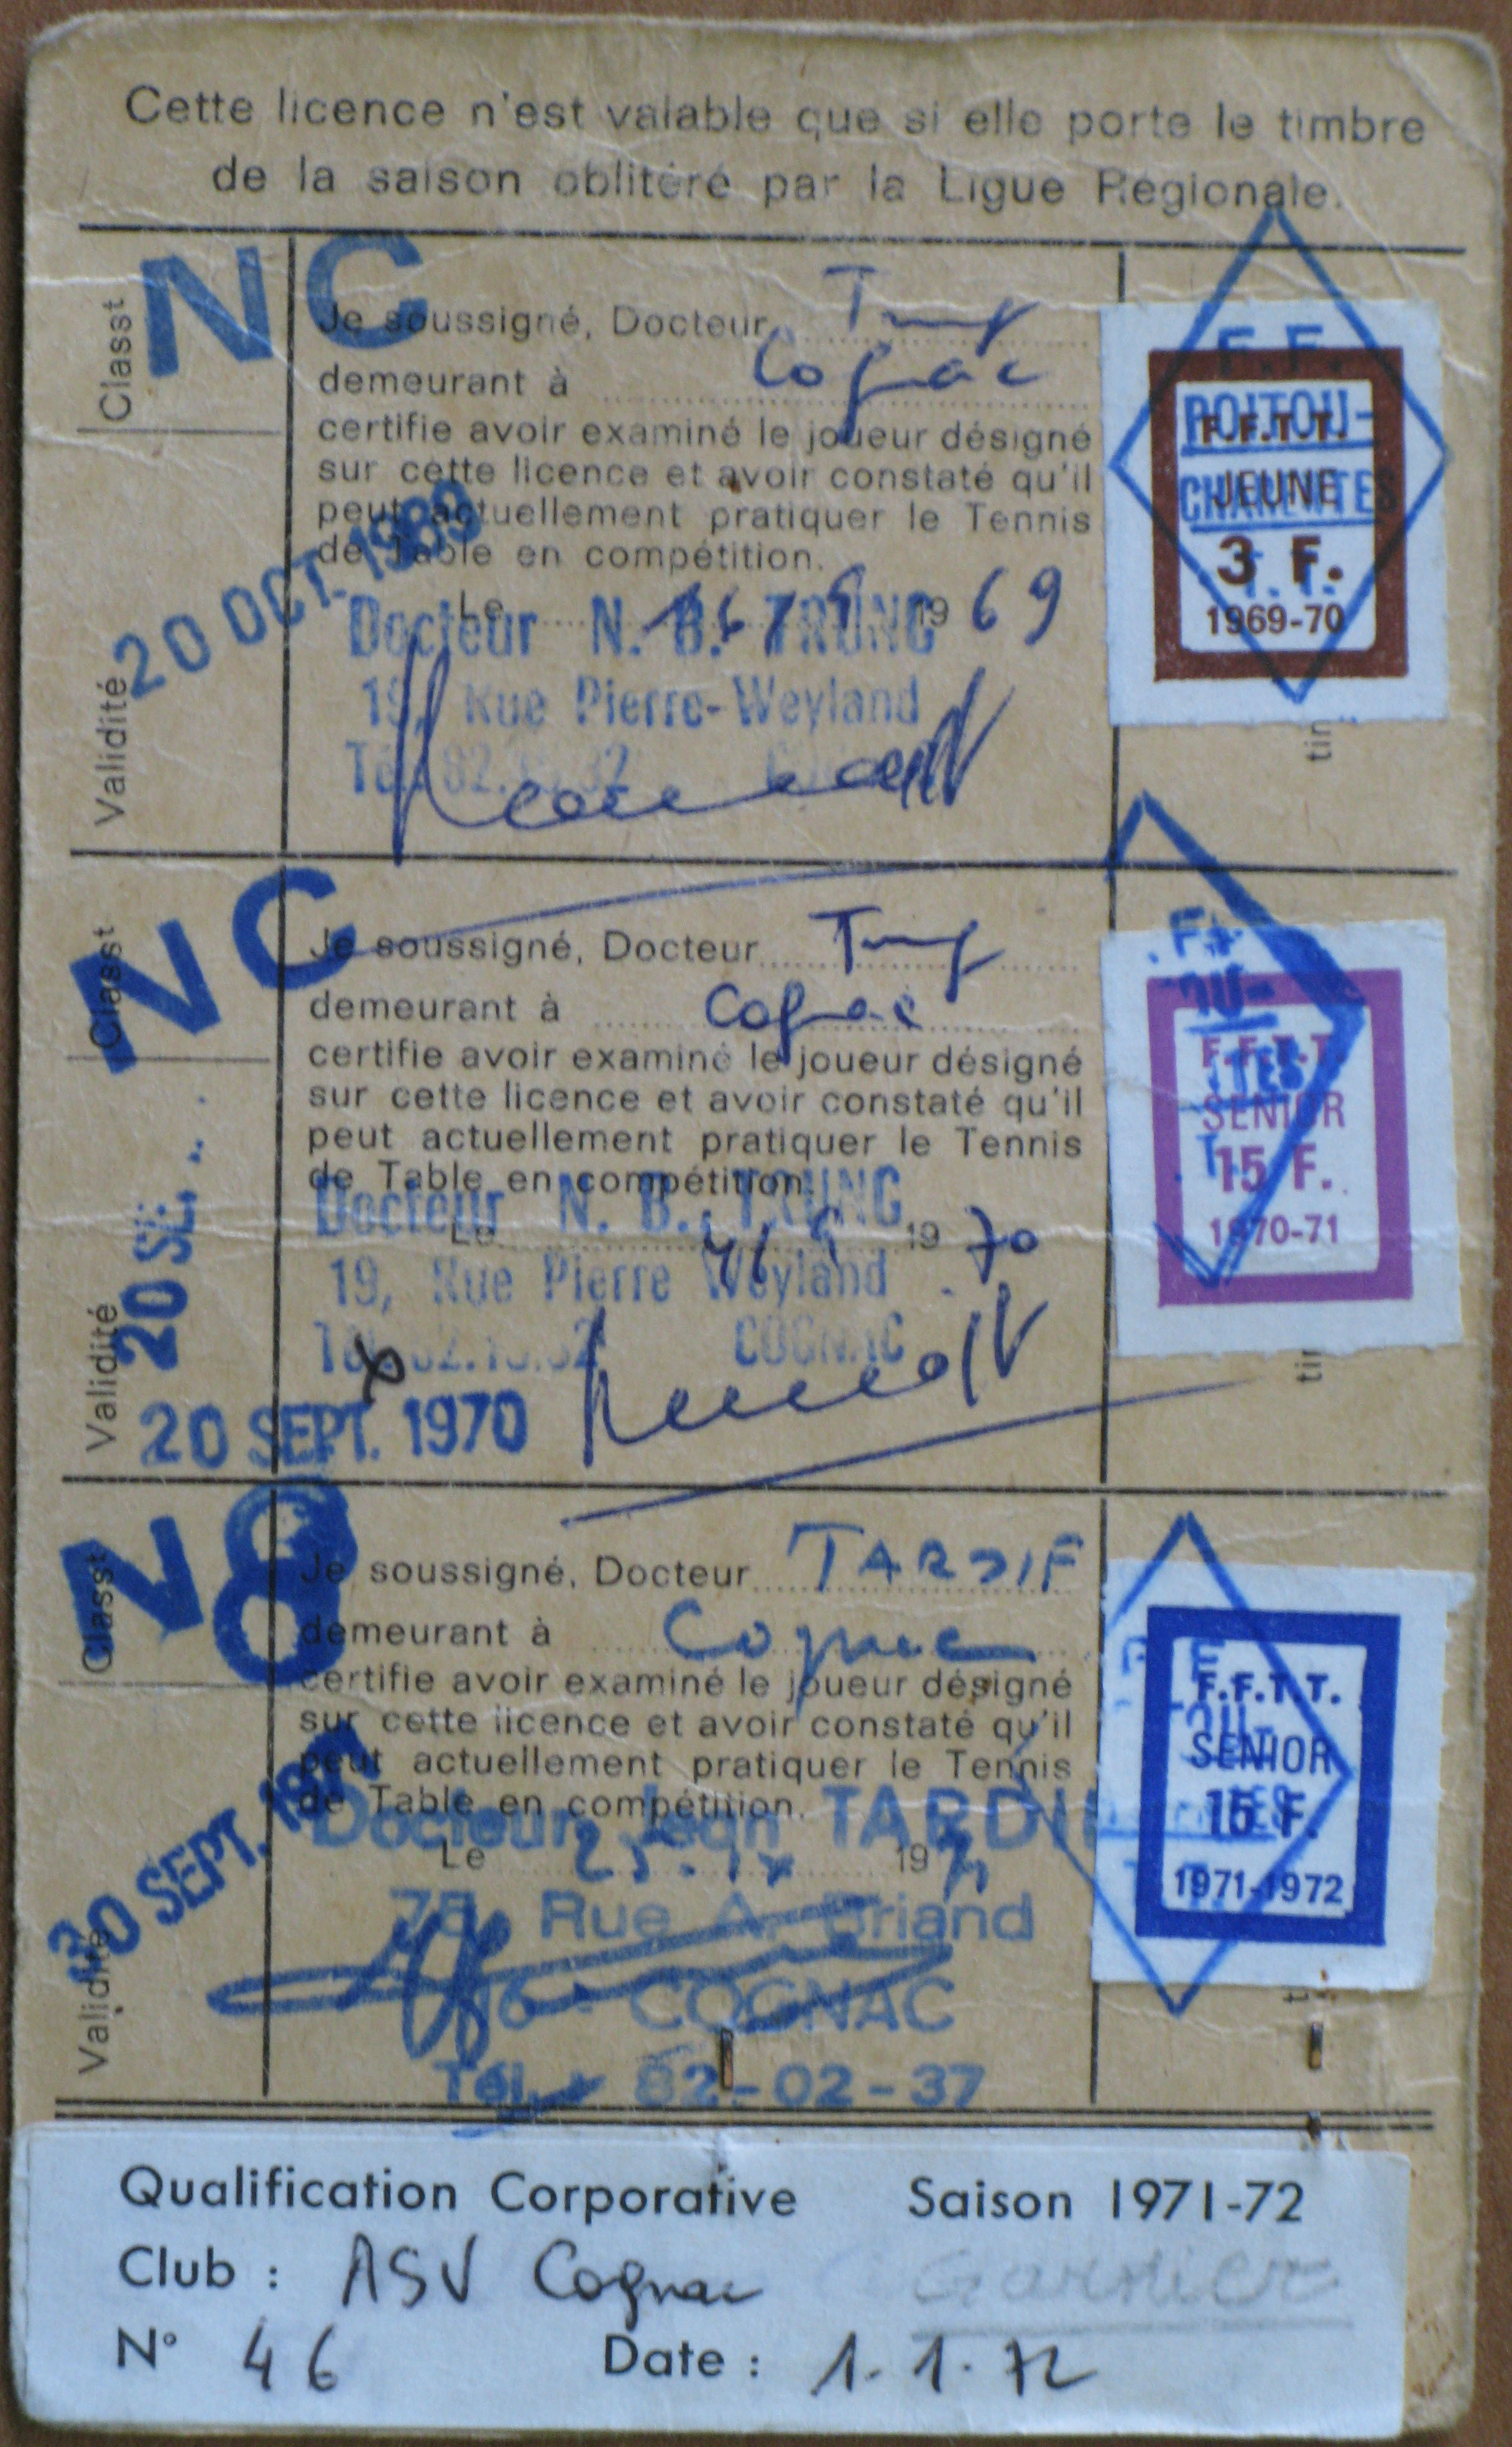 Cette licence n'est valable que si elle porte le timbre
de la saison oblitéré par la Ligue Régionale.
Classt
NC
Je soussigné, Docteur Trung
demeurant à Cognac
certifie avoir examiné le joueur désigné
sur cette licence et avoir constaté qu'il
peut actuellement pratiquer le Tennis
de Table en compétition.
Le 1969
Docteur N. B. TRUNG
19, Rue Pierre-Weyland
Validité
20 OCT. 1969
F.F.
POITOU-
CHARENTES
T.T.
F.F.T.T.
JEUNE
3 F.
1969-70
tim
Classt
NC
Je soussigné, Docteur Trung
demeurant à Cognac
certifie avoir examiné le joueur désigné
sur cette licence et avoir constaté qu'il
peut actuellement pratiquer le Tennis
de Table en compétition.
Le 1970
Docteur N. B. TRUNG
19, Rue Pierre Weyland
COGNAC
Validité
20 SE
20 SEPT. 1970
F.F.T.T.
SENIOR
15 F.
1970-71
tim
Classt
N8
Je soussigné, Docteur TARDIF
demeurant à Cognac
certifie avoir examiné le joueur désigné
sur cette licence et avoir constaté qu'il
peut actuellement pratiquer le Tennis
de Table en compétition.
Le 1971
Docteur Jean TARDIF
78, Rue A. Briand
16 - COGNAC
Tél. : 82-02-37
Validité
30 SEPT. 1971
F.F.T.T.
SENIOR
15 F.
1971-1972
Qualification Corporative Saison 1971-72
Club : ASV Cognac Garnier
N° 46 Date : 1.1.72